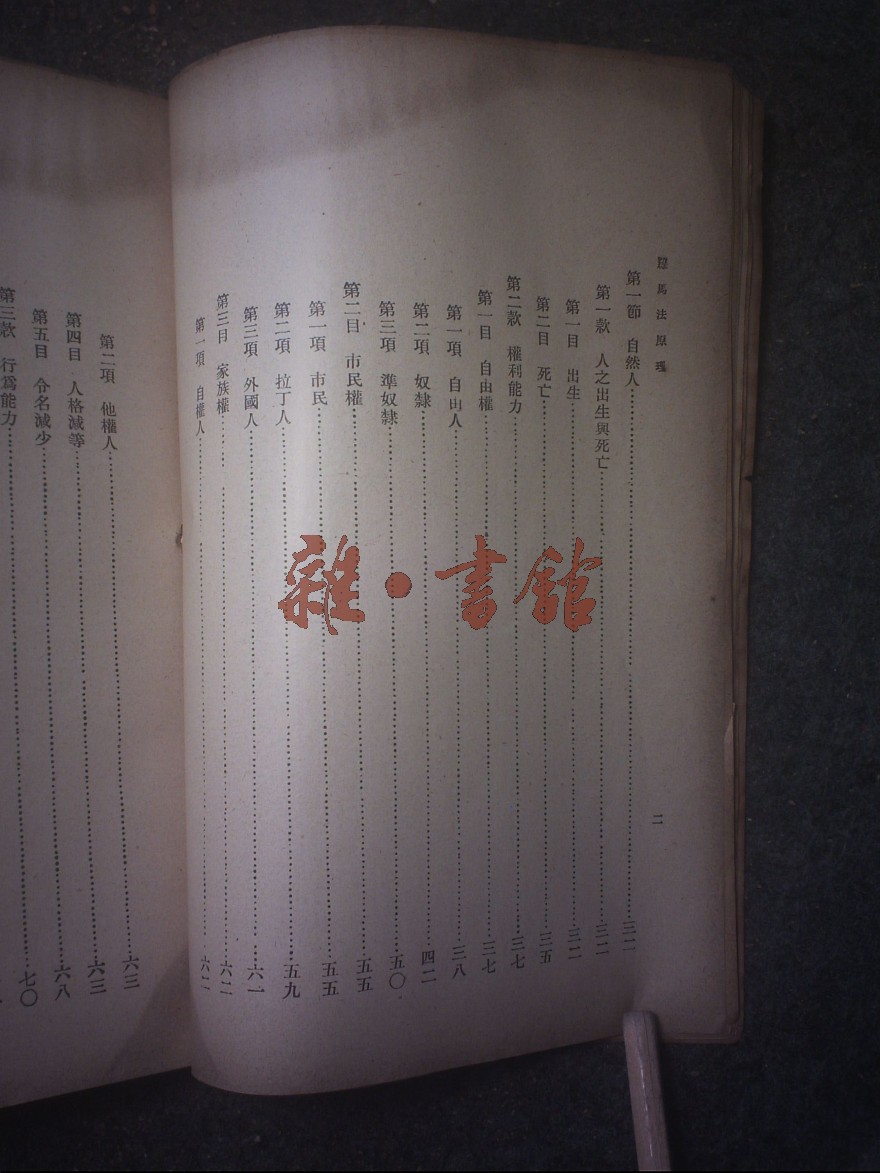 羅馬法原理
第一節 自然人 三二
第一款 人之出生與死亡 三二
第一目 出生 三二
第二目 死亡 三五
第二款 權利能力 三七
第一目 自由權 三七
第一項 自由人 三八
第二項 奴隸 四二
第三項 準奴隸 五〇
第二目 市民權 五五
第一項 市民 五五
第二項 拉丁人 五九
第三項 外國人 六一
第三目 家族權 六二
第一項 自權人 六二
二
第二項 他權人 六三
第四目 人格減等 六三
第五目 令名減少 六八
第三款 行爲能力 七〇
雜·書館